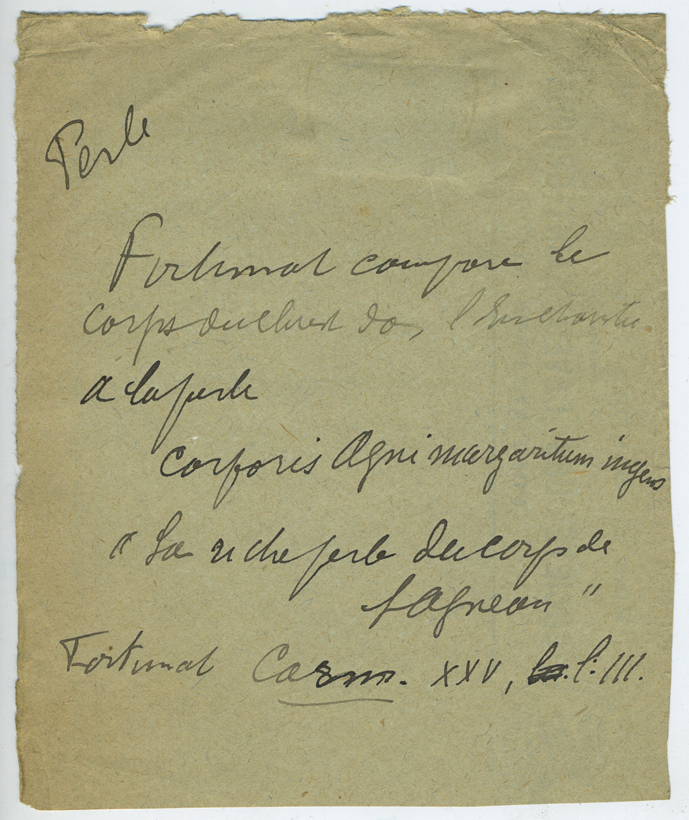 Perle
Fortunat compare le
corps du Christ dans l'Eucharistie
à la perle
corporis Agni margaritum ingens
"La riche perle du corps de
l'Agneau"
Fortunat Carm. XXV, l. III.